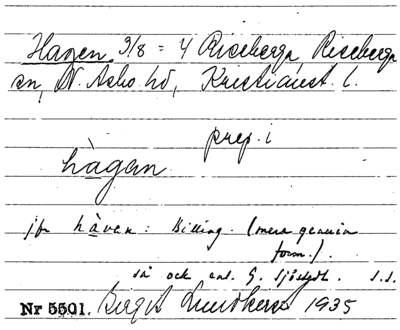 Hagen 3/8 = 4 Riseberga Riseberga
sn, N. Åsbo hd, Kristianst. l.
prep. i
hàgan
jfr hàven: Billing. (mera genuin
form.).
så och enl. G. Sjöstedt. s.s.
Nr 5501. Birgit Lundberg 1935